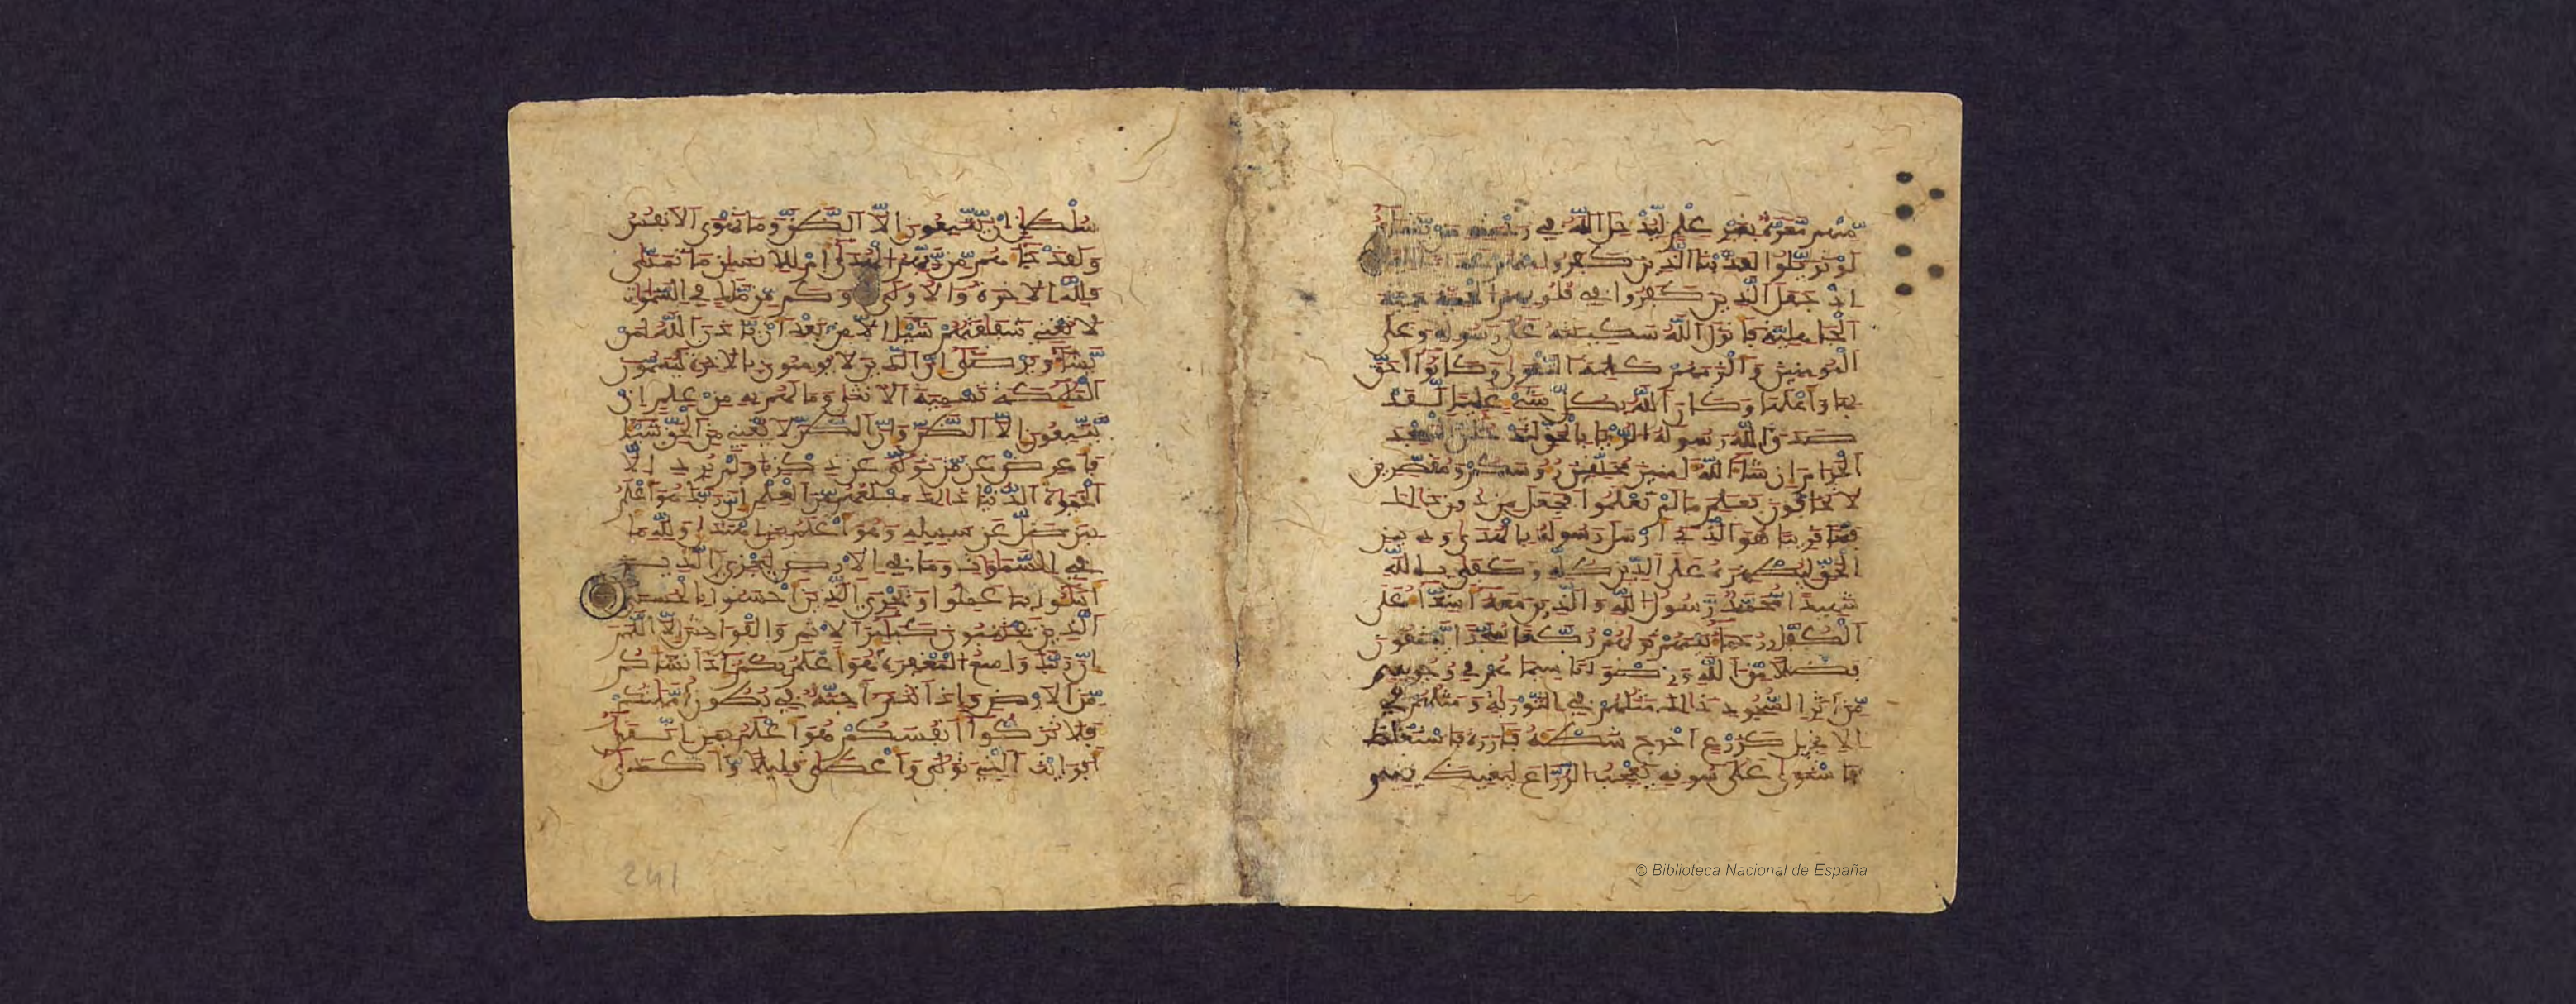 مِّنْهُم مَّعَرَّةٌ بِغَيْرِ عِلْمٍ لِّيُدْخِلَ اَللَّهُ فِي رَحْمَتِهِ مَنْ يَّشَآءُ
لَوْ تَزَيَّلُواْ لَعَذَّبْنَا اَلَّذِينَ كَفَرُواْ مِنْهُمْ عَذَاباً اَلِيماً
اِذْ جَعَلَ اَلَّذِينَ كَفَرُواْ فِي قُلُوبِهِمُ اُلْحَمِيَّةَ حَمِيَّةَ
اَلْجَاهِلِيَّةِ فَأَنزَلَ اَللَّهُ سَكِينَتَهُ عَلَى رَسُولِهِ وَعَلَى
اَلْمُومِنِينَ وَأَلْزَمَهُمْ كَلِمَةَ اَلتَّقْوَى وَكَانُواْ أَحَقَّ
بِهَا وَأَهْلَهَا وَكَانَ اَللَّهُ بِكُلِّ شَيْءٍ عَلِيماً لَّقَدْ
صَدَقَ اَللَّهُ رَسُولَهُ اُلرُّءْيَا بِالْحَقِّ لَتَدْخُلُنَّ اَلْمَسْجِدَ
اَلْحَرَامَ إِن شَآءَ اَللَّهُ ءَامِنِينَ مُحَلِّقِينَ رُءُوسَكُمْ وَمُقَصِّرِينَ
لَا تَخَافُونَ فَعَلِمَ مَا لَمْ تَعْلَمُواْ فَجَعَلَ مِن دُونِ ذَالِكَ
فَتْحاً قَرِيباً هُوَ اَلَّذِي أَرْسَلَ رَسُولَهُ بِالْهُدَى وَدِينِ
اِلْحَقِّ لِيُظْهِرَهُ عَلَى اَلدِّينِ كُلِّهِ وَكَفَى بِاللَّهِ
شَهِيداً مُّحَمَّدٌ رَّسُولُ اُللَّهِ وَالَّذِينَ مَعَهُ أَشِدَّآءُ عَلَى
اَلْكُفَّارِ رُحَمَآءُ بَيْنَهُمْ تَرَاهُمْ رُكَّعاً سُجَّداً يَبْتَغُونَ
فَضْلاً مِّنَ اَللَّهِ وَرِضْوَاناً سِيمَاهُمْ فِي وُجُوهِهِم
مِّنَ اَثَرِ اِلسُّجُودِ ذَالِكَ مَثَلُهُمْ فِي اِلتَّوْرَاةِ وَمَثَلُهُمْ فِي
اِلْانجِيلِ كَزَرْعٍ اَخْرَجَ شَطْأَهُ فَآزَرَهُ فَاسْتَغْلَظَ
فَاسْتَوَى عَلَى سُوقِهِ يُعْجِبُ اُلزُّرَّاعَ لِيَغِيظَ بِهِمُ
سُلْطَانٍ اِنْ يَّتَّبِعُونَ إِلَّا اَلظَّنَّ وَمَا تَهْوَى اَلْانفُسُ
وَلَقَدْ جَآءَهُم مِّن رَّبِّهِمُ اُلْهُدَى أَمْ لِلِانسَانِ مَا تَمَنَّى
فَلِلَّهِ اِلْاخِرَةُ وَالُاولَى وَكَم مِّن مَّلَكٍ فِي اِلسَّمَاوَاتِ
لَا تُغْنِي شَفَاعَتُهُمْ شَيْئاً اِلَّا مِنْ بَعْدِ أَنْ يَّاذَنَ اَللَّهُ لِمَنْ
يَّشَآءُ وَيَرْضَى إِنَّ اَلَّذِينَ لَا يُومِنُونَ بِالْاخِرَةِ لَيُسَمُّونَ
اَلْمَلَئِكَةَ تَسْمِيَةَ اَلْانثَى وَمَا لَهُم بِهِ مِنْ عِلْمٍ إِنْ
يَّتَّبِعُونَ إِلَّا اَلظَّنَّ وَإِنَّ اَلظَّنَّ لَا يُغْنِي مِنَ اَلْحَقِّ شَيْئاً
فَأَعْرِضْ عَن مَّن تَوَلَّى عَن ذِكْرِنَا وَلَمْ يُرِدِ اِلَّا
اَلْحَيَوةَ اَلدُّنْيَا ذَالِكَ مَبْلَغُهُم مِّنَ اَلْعِلْمِ إِنَّ رَبَّكَ هُوَ أَعْلَمُ
بِمَن ضَلَّ عَن سَبِيلِهِ وَهُوَ أَعْلَمُ بِمَنِ اِهْتَدَى وَلِلَّهِ مَا
فِي اِلسَّمَاوَاتِ وَمَا فِي اِلْارْضِ لِيَجْزِيَ اَلَّذِينَ
أَسَاءُواْ بِمَا عَمِلُواْ وَيَجْزِيَ اَلَّذِينَ أَحْسَنُواْ بِالْحُسْنَى
اَلَّذِينَ يَجْتَنِبُونَ كَبَائِرَ اَلِاثْمِ وَالْفَوَاحِشَ إِلَّا اَللَّمَمَ
إِنَّ رَبَّكَ وَاسِعُ اُلْمَغْفِرَةِ هُوَ أَعْلَمُ بِكُمُ إِذَ اَنشَأَكُم
مِّنَ اَلْارْضِ وَإِذَ اَنتُمُ أَجِنَّةٌ فِي بُطُونِ أُمَّهَاتِكُمْ
فَلَا تُزَكُّواْ أَنفُسَكُمْ هُوَ أَعْلَمُ بِمَنِ اِتَّقَى
أَفَرَأَيْتَ اَلَّذِي تَوَلَّى وَأَعْطَى قَلِيلاً وَأَكْدَى
241
© Biblioteca Nacional de España